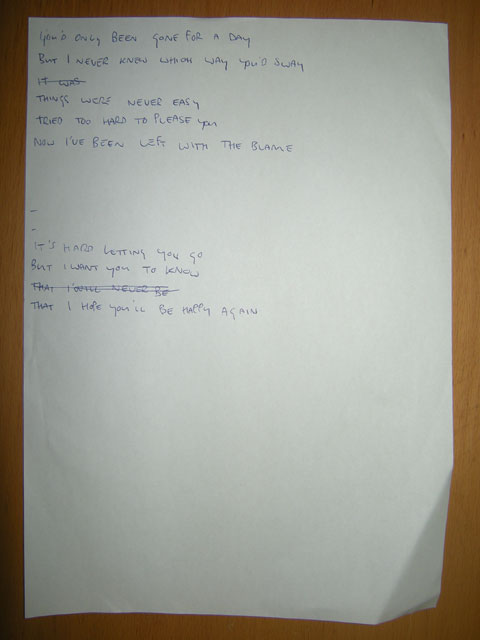 YOU'D ONLY BEEN GONE FOR A DAY
BUT I NEVER KNEW WHICH WAY YOU'D SWAY
IT WAS
THINGS WERE NEVER EASY
TRIED TOO HARD TO PLEASE you
NOW I'VE BEEN LEFT WITH THE BLAME
-
-
IT'S HARD LETTING YOU GO
BUT I WANT YOU TO KNOW
THAT I NEVER BE
THAT I HOPE YOU'LL BE HAPPY AGAIN